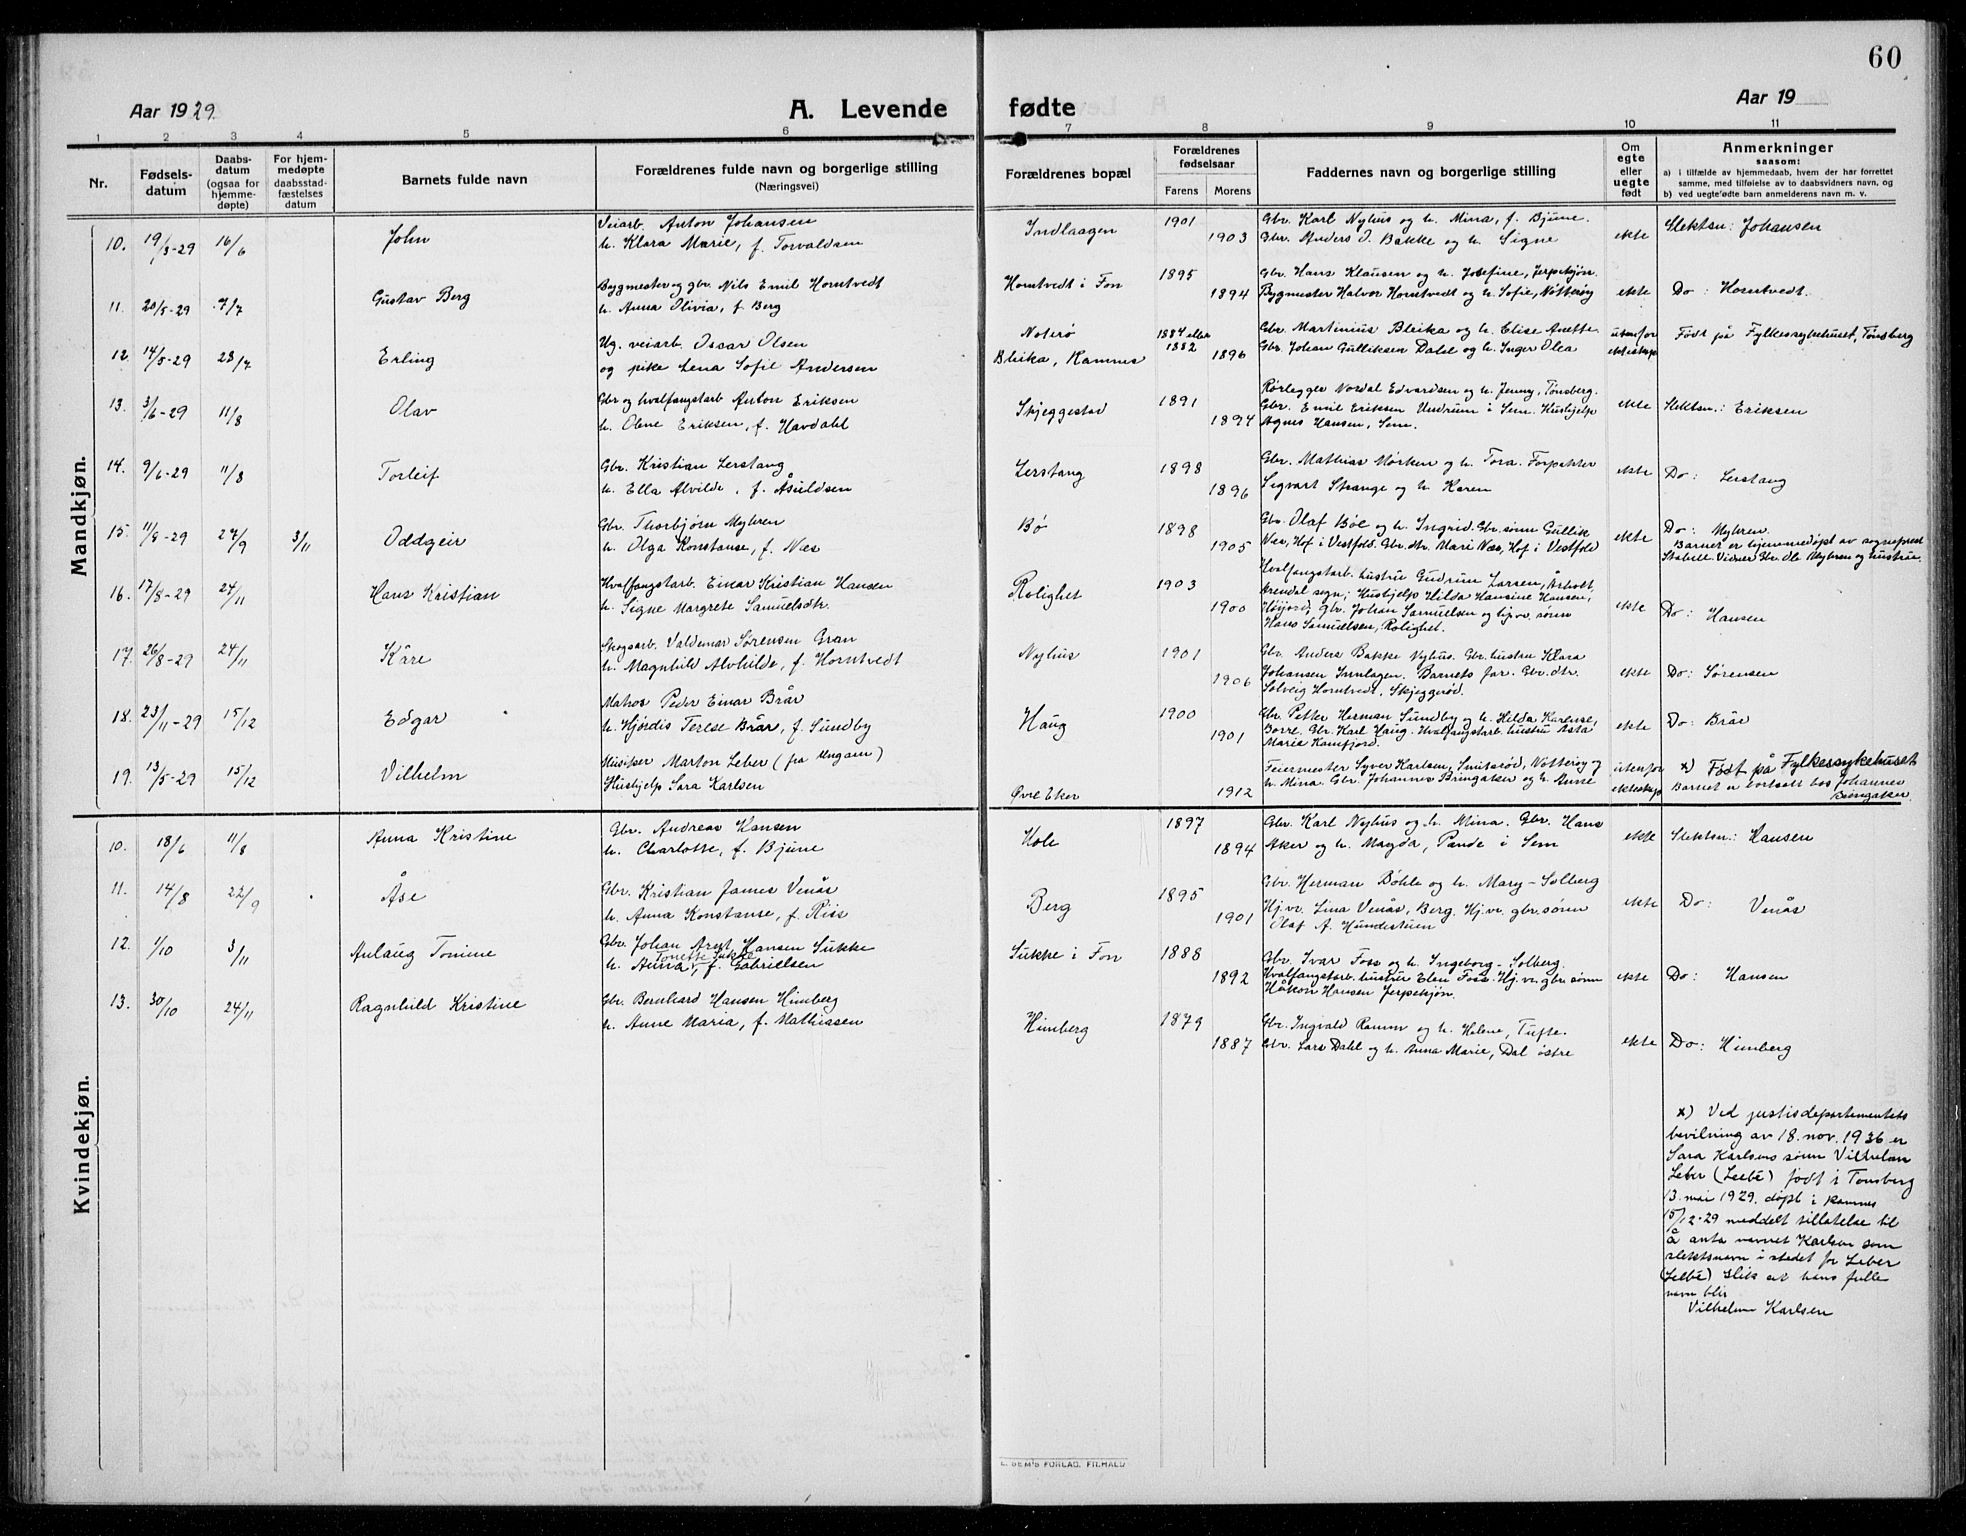 60
Aar 1929.
A. Levende fødte
Aar 19
1 2 3 4 5 6 7 8 9 10 11
Nr.
Fødsels-
datum
Daabs-
datum
(ogsaa for
hjemme-
døpte)
For hjem-
medøpte
daabsstad-
fæstelses
datum
Barnets fulde navn
Forældrenes fulde navn og borgerlige stilling
(Næringsvei)
Forældrenes bopæl
Forældrenes
fødselsaar
Farens Morens
Faddernes navn og borgerlige stilling
Om
egte
eller
uegte
født
Anmerkninger
saasom:
a) i tilfælde av hjemmedaab, hvem der har forrettet
samme, med tilføielse av to daabsvidners navn, og
b) ved uegtefødte barn anmelderens navn m. v.
Mandkjøn.
10. 19/3-29 16/6 John
Veiarb. Anton Johansen
h. Klara Marie, f. Torvaldsen
Indlaagen 1901 1903
Gbr. Karl Nyhus og h. Mina, f. Bjune.
Gbr. Anders O. Bakke og h. Signe
ekte Slektsn: Johansen
11. 20/5-29 7/7 Gustav Berg
Bygmester og gbr. Nils Emil Horntvedt
h. Anna Olivia, f. Berg
Horntvedt i Fon 1895 1894
Gbr. Hans Klausen og h. Josefine, Jerpekjøn.
Bygmester Halvor Horntvedt og h. Sofie, Nøtterøy
ekte Do: Horntvedt.
12. 14/5-29 28/7 Erling
Ug. veiarb. Oscar Olsen
og pike Lena Sofie Andersen
Noterø
Bleika, Ramnes
1884 eller
1882 1896
Gbr. Martinius Bleika og h. Elise Anette.
Gbr. Johan Gulliksen Dalse og h. Inger Olea
utenfor
ekteskap
Født på Fylkessykehuset, Tønsberg
13. 3/6-29 11/8 Olav
Gbr og hvalfangstarb Anton Eriksen
h. Olne Eriksen, f. Havdahl
Skjeggestad 1891 1894
Rørlegger Nordal Edvardsen og h. Jenny, Tønsberg.
Gbr. Emil Eriksen Undrum i Sem. Hushjelp
Agnes Hansen, Sem.
ekte Slektsn.: Eriksen
14. 9/6-29 11/8 Torleif
Gbr. Kristian Lerstang
h. Ella Alvilde, f. Asuldsen
Lerstang 1898 1896
Gbr. Mathias Mørken og h. Tora. Forpakter
Sigvart Strange og h. Karen
ekte Do: Lerstang
15. 11/8-29 27/9 3/11 Oddgeir
Gbr. Thorbjørn Myhren
h. Olga Konstanse, f. Næs
Bø 1898 1905
Gbr. Olaf Bøe og h. Ingrid. Gbr. sønn Gullik
Næs, Hof i Vestfold. Gbr. dtr. Mari Næs, Hof i Vestfold
ekte Do: Myhren.
Barnet er hjemmedøpt av sogneprest
Stabell. Vidner: Gbr. Ole Myhren og hustru.
16. 17/8-29 24/11 Hans Kristian
Hvalfangstarb. Einar Kristian Hansen
h. Signe Margrete Samuelsdtr.
Rolighet 1903 1900
Hvalfangstarb. hustru Gudrun Larsen, Årholt,
Arendal sogn; Hushjelp Hilda Hansine Hansen,
Høijord, gbr. Johan Samuelsen og hj.v. sønn
Hans Samuelsen, Rolighet.
ekte Do: Hansen
17. 26/8-29 24/11 Kåre
Skogsarb. Valdemar Sørensen Gran
h. Magnhild Alvhilde, f. Horntvedt
Nyhus 1901 1906
Gbr. Anders Bakke Nyhus. Gbr. hustru Klara
Johansen Innlagen. Barnets far. Gbr. dtr.
Solveig Horntvedt, Skjeggerød.
ekte Do: Sørensen
18. 23/11-29 15/12 Edgar
Matros Peder Einar Brår
h. Hjørdis Terese Brår, f. Sundby
Haug 1900 1901
Gbr. Petter Herman Sundby og h. Hilda Karense,
Borre. Gbr. Karl Haug. Hvalfangstarb. hustru Asta
Marie Kamfjord.
ekte Do: Brår
19. 13/5-29 15/12 Vilhelm
Musiker Marton Leber (fra Ungarn)
Hushjelp Sara Karlsen
Øvre Eker 1912
Feiermester Syver Karlsen, Smitsrød, Nøtterøy og
h. Mina. Gbr. Johannes Bringaker og h. Anne
utenfor
ekteskap
x) Født på Fylkessykehuset
Barnet er bortsatt hos Johannes
Bringaker.
Kvindekjøn.
10. 18/6 11/8 Anna Kristine
Gbr. Andreas Hansen
h. Charlotte, f. Bjune
Kole 1897 1894
Gbr. Karl Nyhus og h. Mina. Gbr. Hans
Aker og h. Magda, Pande i Sem
ekte Slektsn: Hansen
11. 14/8 22/9 Åse
Gbr. Kristian James Venås
h. Anna Konstanse, f. Riis
Berg 1895 1901
Gbr. Herman Bøhle og h. Mary - Solberg
Hj.vr. Lina Venås, Berg. Hj.vr. gbr. sønn
Olaf A. Hundstuen
ekte Do: Venås
12. 1/10 3/11 Anlaug Tomine
Gbr. Johan Arnt Hansen Sukke
Tonette Sukke
h. Anna, f. Gabrielsen
Sukke i Fon 1888 1892
Gbr. Ivar Foss og h. Ingeborg - Solberg.
Hvalfangstarb. hustru Elen Foss. Hj.vr. gbr. sønn
Håkon Hansen Jerpekjøn.
ekte Do: Hansen
13. 30/10 24/11 Ragnhild Kristine
Gbr. Bernhard Hansen Himberg
h. Anne Maria, f. Mathiassen
Himberg 1879 1887
Gbr. Ingvald Ramm og h. Helene, Tufte.
Gbr. Lars Dahl og h. Anna Marie, Dal østre
ekte Do: Himberg
x) Ved justisdepartementets
bevilning av 18. nov. 1936 er
Sara Karlsens sønn Vilhelm
Leber (Leebé) født i Tønsberg
13. mai 1929, døpt i Ramnes
15/12-29 meddelt tillatelse til
å anta navnet Karlsen som
slektsnavn i stedet for Leber
(Leebé) slik at hans fulle
navn blir
Vilhelm Karlsen
E. SEM'S FORLAG, FR.HALD